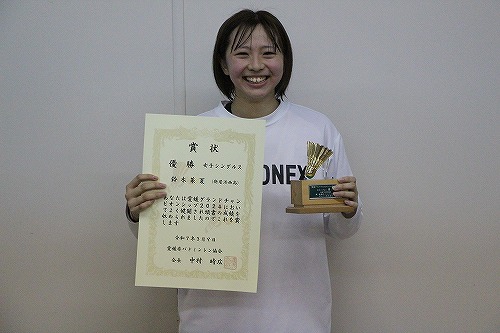 賞状
優勝 女子シングルス
鈴木華夏
あなたは愛媛グランドチャン
ピオンシップ2024におい
てよく健闘され頭書の成績を
収められましたのでこれを賞
します
令和7年3月9日
愛媛県バドミントン協会
会長 中村 時広
ONEX